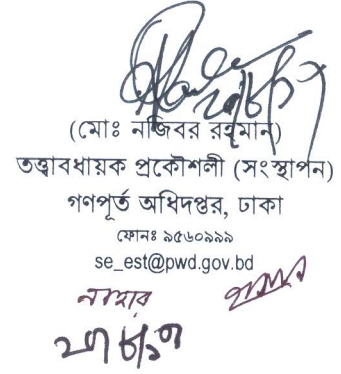 (মোঃ নজিবর রহমান)
তত্ত্বাবধায়ক প্রকৌশলী (সংস্থাপন)
গণপূর্ত অধিদপ্তর, ঢাকা
ফোনঃ ৯৫৬০৯৯৯
se_est@pwd.gov.bd
নাহার